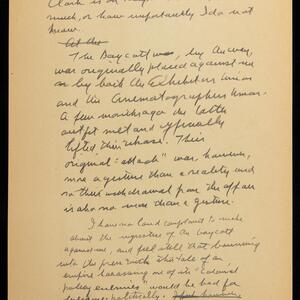 Clark is on
much, or how importantly I do not
know.
At the
The Boycott was, by the way,
was originally placed against me
or by both the Exhibitors union
and the Cinematographers Union.
A few months ago the latter
outfit met and officially
lifted theirs. This
original "attack" was, however,
more a gesture than a reality and
so their withdrawal from the affair
is also no more than a gesture.
I have no loud complaint to make
about the injustice of the boycott
against me, and feel that running
into the press with the tale of an
empire harassing one of its "Colonial
enemies" would be bad for
politically.